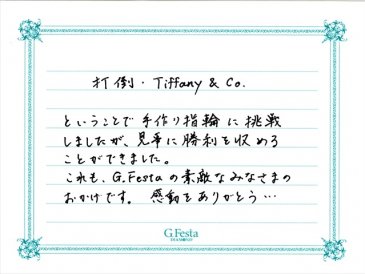 打倒・Tiffany & Co.
ということで手作り指輪に挑戦
しましたが、見事に勝利を収める
ことができました。
これも、G.Festaの素敵なみなさまの
おかげです。感動をありがとう…
G.Festa
DIAMOND